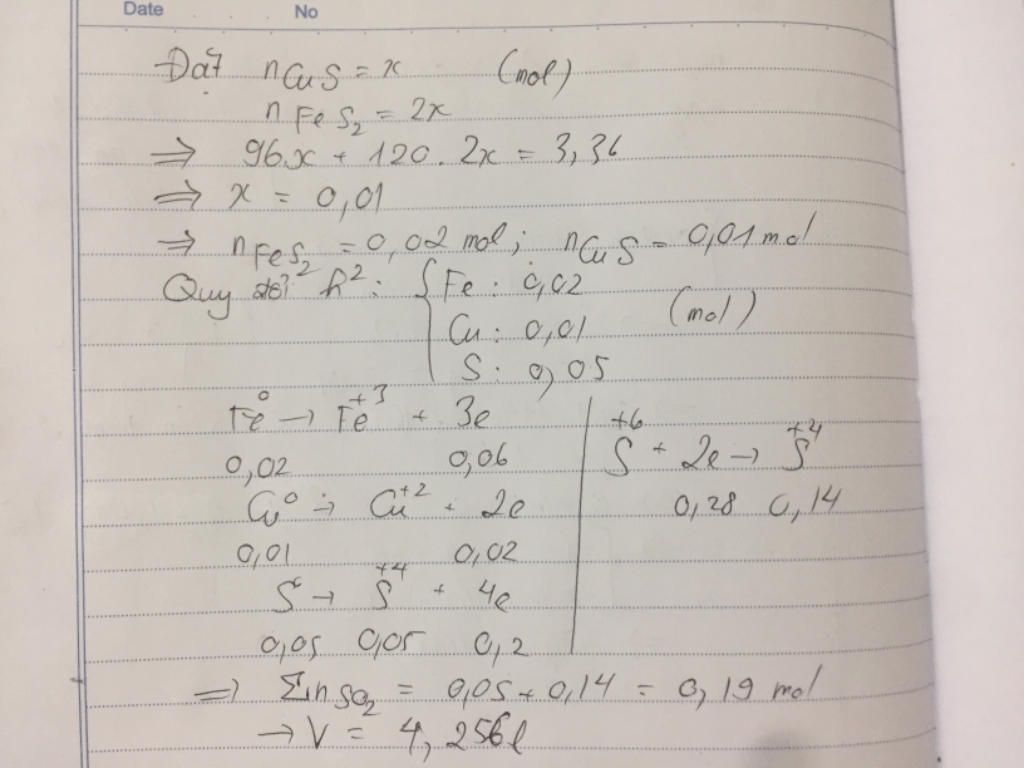 Date No
Đặt nCuS = x (mol)
nFeS₂ = 2x
⇒ 96x + 120 . 2x = 3,36
⇒ x = 0,01
⇒ nFeS₂ = 0,02 mol ; nCuS = 0,01 mol
Quy đổi h²: { Fe : 0,02
Cu : 0,01 (mol)
S : 0,05
Fe⁰ → Fe⁺³ + 3e
0,02 0,06
Cu⁰ → Cu⁺² + 2e
0,01 0,02
S⁰ → S⁺⁴ + 4e
0,05 0,05 0,2
S⁺⁶ + 2e → S⁺⁴
0,28 0,14
⇒ ΣnSO₂ = 0,05 + 0,14 = 0,19 mol
→ V = 4,256l